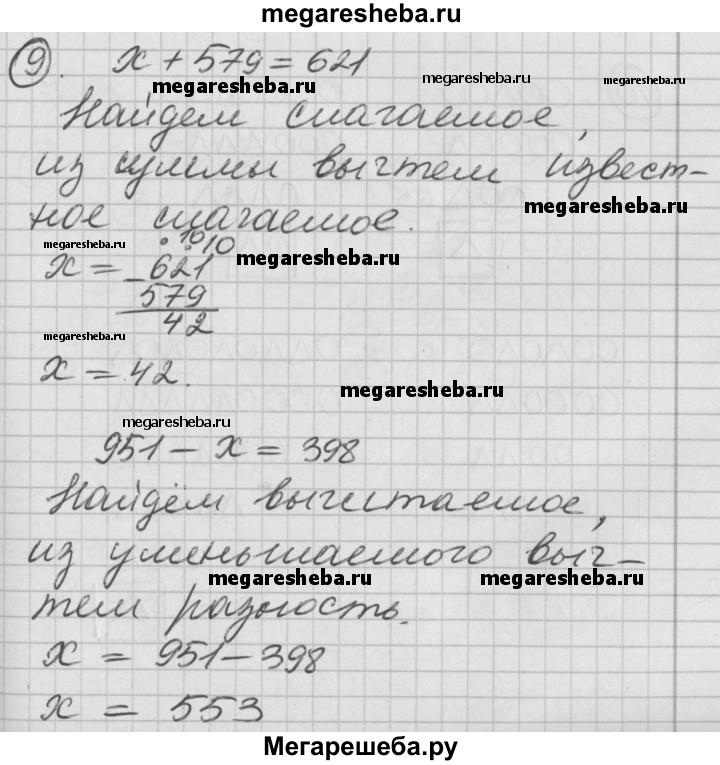 megaresheba.ru
9. x + 579 = 621
megaresheba.ru megaresheba.ru megaresheba.ru
Найдем слагаемое,
из суммы вычтем извест-
megaresheba.ru
ное слагаемое.
10 10
megaresheba.ru megaresheba.ru
x = - 621
579
42
megaresheba.ru
x = 42.
megaresheba.ru
megaresheba.ru
951 - x = 398
Найдём вычитаемое,
из уменьшаемого выч-
megaresheba.ru megaresheba.ru
тем разность.
x = 951 - 398
x = 553
Мегарешеба.ру